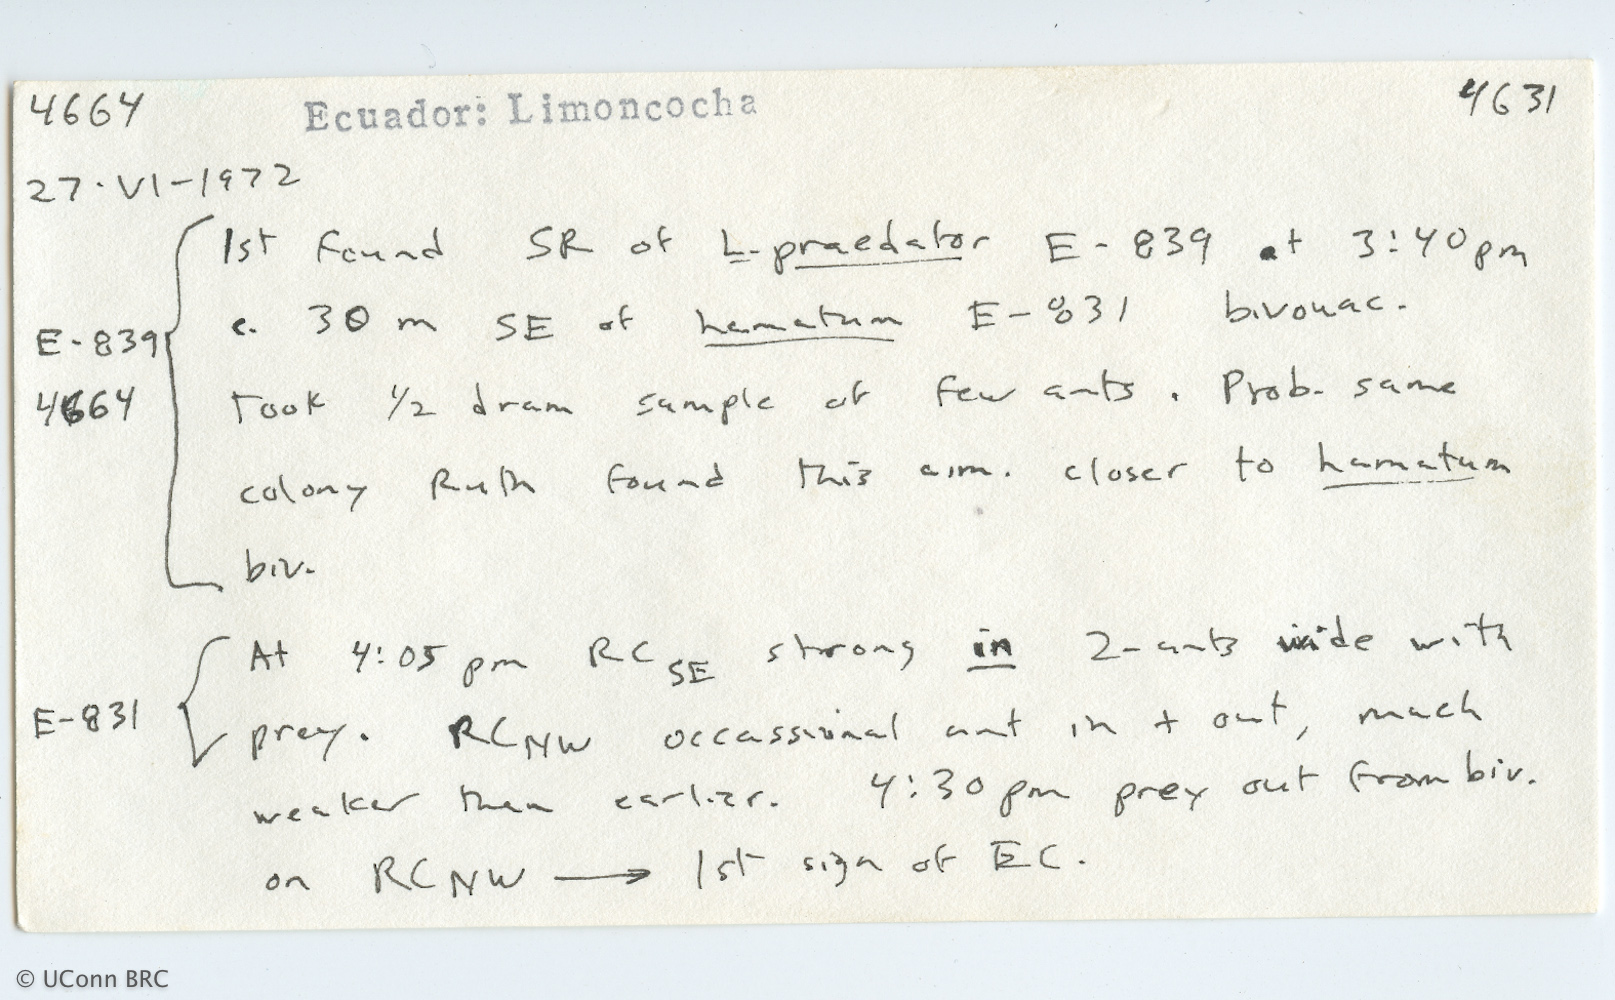 4664 Ecuador: Limoncocha 4631
27·VI-1972
1st found SR of L. praedator E-839 at 3:40pm
c. 30 m SE of hamatum E-831 bivouac.
E-839
4664 Took 1/2 dram sample of few ants. Prob. same
colony Ruth found this a.m. closer to hamatum
biv.
At 4:05 pm RC SE strong in 2-ants wide with
E-831 prey. RC NW occassional ant in + out, much
weaker than earlier. 4:30 pm prey out from biv.
on RC NW → 1st sign of EC.
© UConn BRC